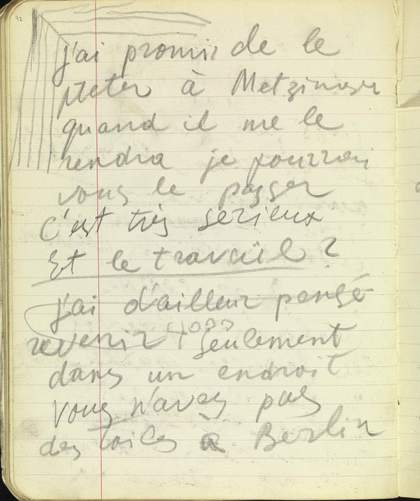 92
j'ai promis de le
preter à Metzinger
quand il me le
rendra je pourrai
vous le passer
C'est très serieux
Et le travail?
j'ai d'ailleur pensé
revenir 4000 seulement
dans un endroit
vous n'avez pas
des toiles a Berlin